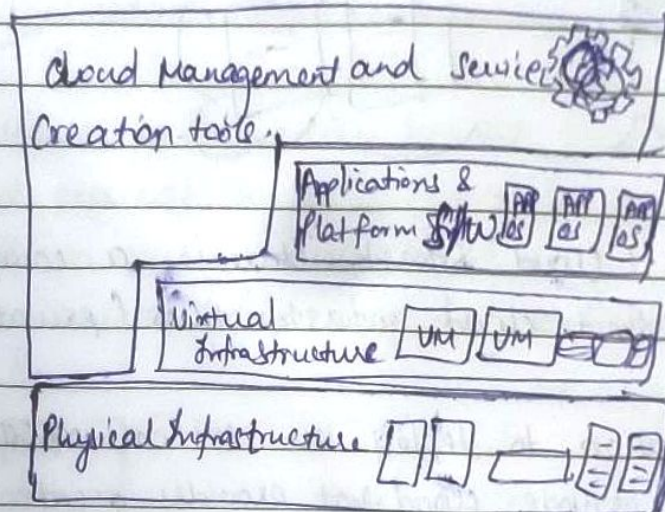 Cloud Management and Services
Creation tools.
Applications &
Platform S/W
APP
OS
APP
OS
APP
OS
Virtual
Infrastructure
VM
VM
Physical Infrastructure